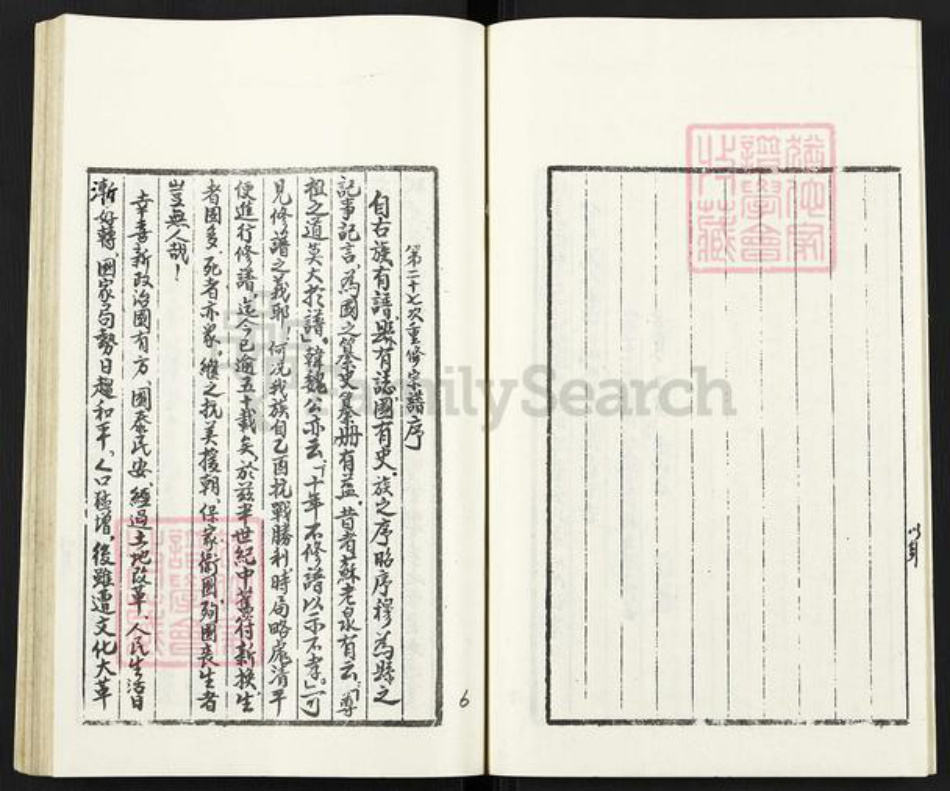 第二十七次重修宗譜序
自古族有譜、縣有誌、國有史。族之序昭序穆、為縣之
記事記言、為國之纂史纂册有益。昔者蘇老泉有云:「尊
祖之道莫大於譜」。韓魏公亦云:「十年不修譜以示不孝。」可
見修譜之義耶!何況我族自乙酉抗戰勝利、時局略處清平
便進行修譜、迄今已逾五十載矣、於兹半世紀中舊符新換、生
者固多、死者亦衆、繼之抗美援朝、保家衛國、殉國喪生者
豈無人哉!
幸喜新政治國有方、國泰民安、經過土地改革、人民生活日
漸好轉、國家局勢日趨和平、人口猛增、後雖遭文化大革
6
猶他家
譜學會
收藏
FamilySearch